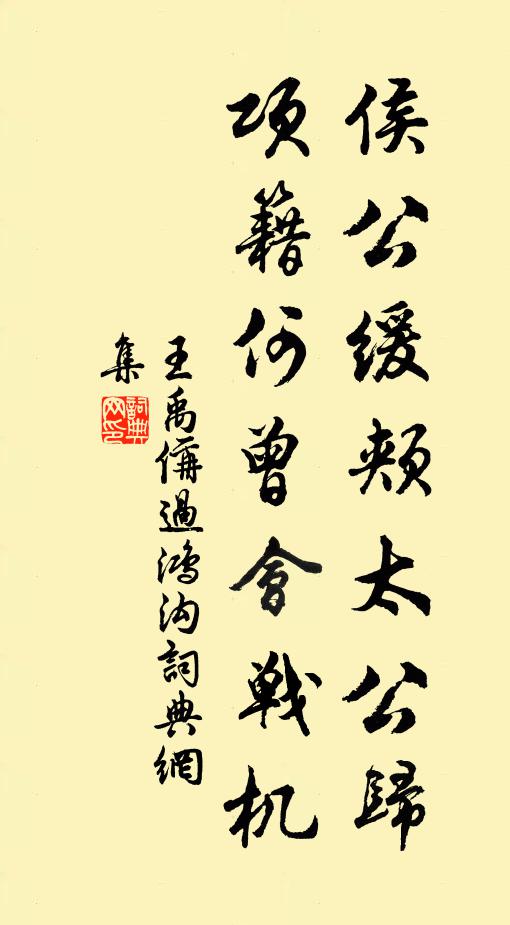 侯公缓颊太公歸
項籍何曾會戰机
王禹偁過鴻沟詞典網
集
詞典网印